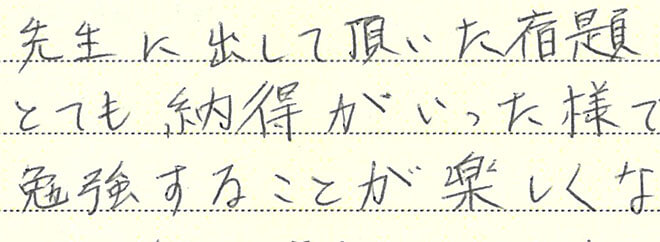 先生に出して頂いた宿題
とても納得がいった様で
勉強することが楽しくな